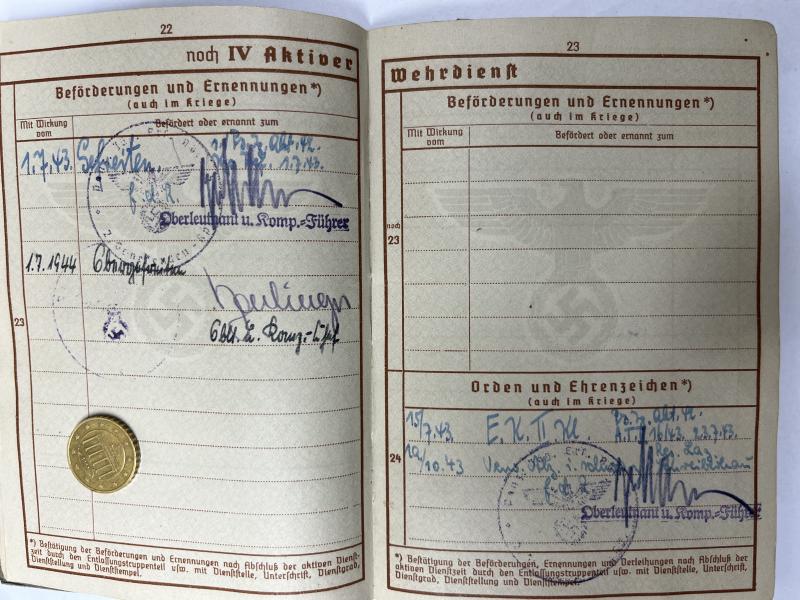 22
noch IV Aktiver
Beförderungen und Ernennungen*)
(auch im Kriege)
Mit Wirkung vom
Befördert oder ernannt zum
1.7.43. Gefreiten. Pz. Jg. Abt. 42.
1.7.43.
f. d. R.
Oberleutnant u. Komp.-Führer
1.7.1944 Obergefreiten
23
Oblt. u. Komp.-Chef
*) Bestätigung der Beförderungen und Ernennungen nach Abschluß der aktiven Dienst-
zeit durch den Entlassungstruppenteil usw. mit Dienststelle, Unterschrift, Dienstgrad,
Dienststellung und Dienststempel.
23
Wehrdienst
Beförderungen und Ernennungen*)
(auch im Kriege)
Mit Wirkung vom
Befördert oder ernannt zum
noch
23
Orden und Ehrenzeichen*)
(auch im Kriege)
15/7.43 E.K. II Kl. Pz. Jg. Abt. 42.
16/43 23.7.43.
10.43 Verw. Abz. i. Res. Laz.
24
f. d. R.
Oberleutnant u. Komp.-Führer
*) Bestätigung der Beförderungen, Ernennungen und Verleihungen nach Abschluß der
aktiven Dienstzeit durch den Entlassungstruppenteil usw. mit Dienststelle, Unterschrift,
Dienstgrad, Dienststellung und Dienststempel.